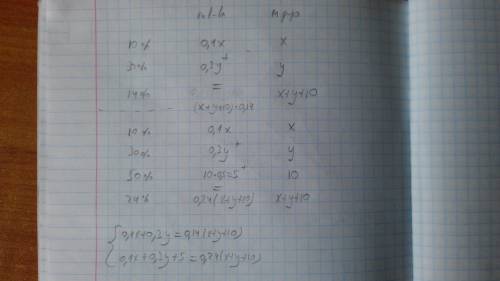 m в-в m р-р
10% 0,1x x
30% 0,3y + y
=
14% x+y+10
(x+y+10)·0,14
10% 0,1x x
30% 0,3y + y
50% 10·0,5=5 + 10
=
24% 0,24(x+y+10) x+y+10
0,1x+0,3y=0,14(x+y+10)
0,1x+0,3y+5=0,24(x+y+10)